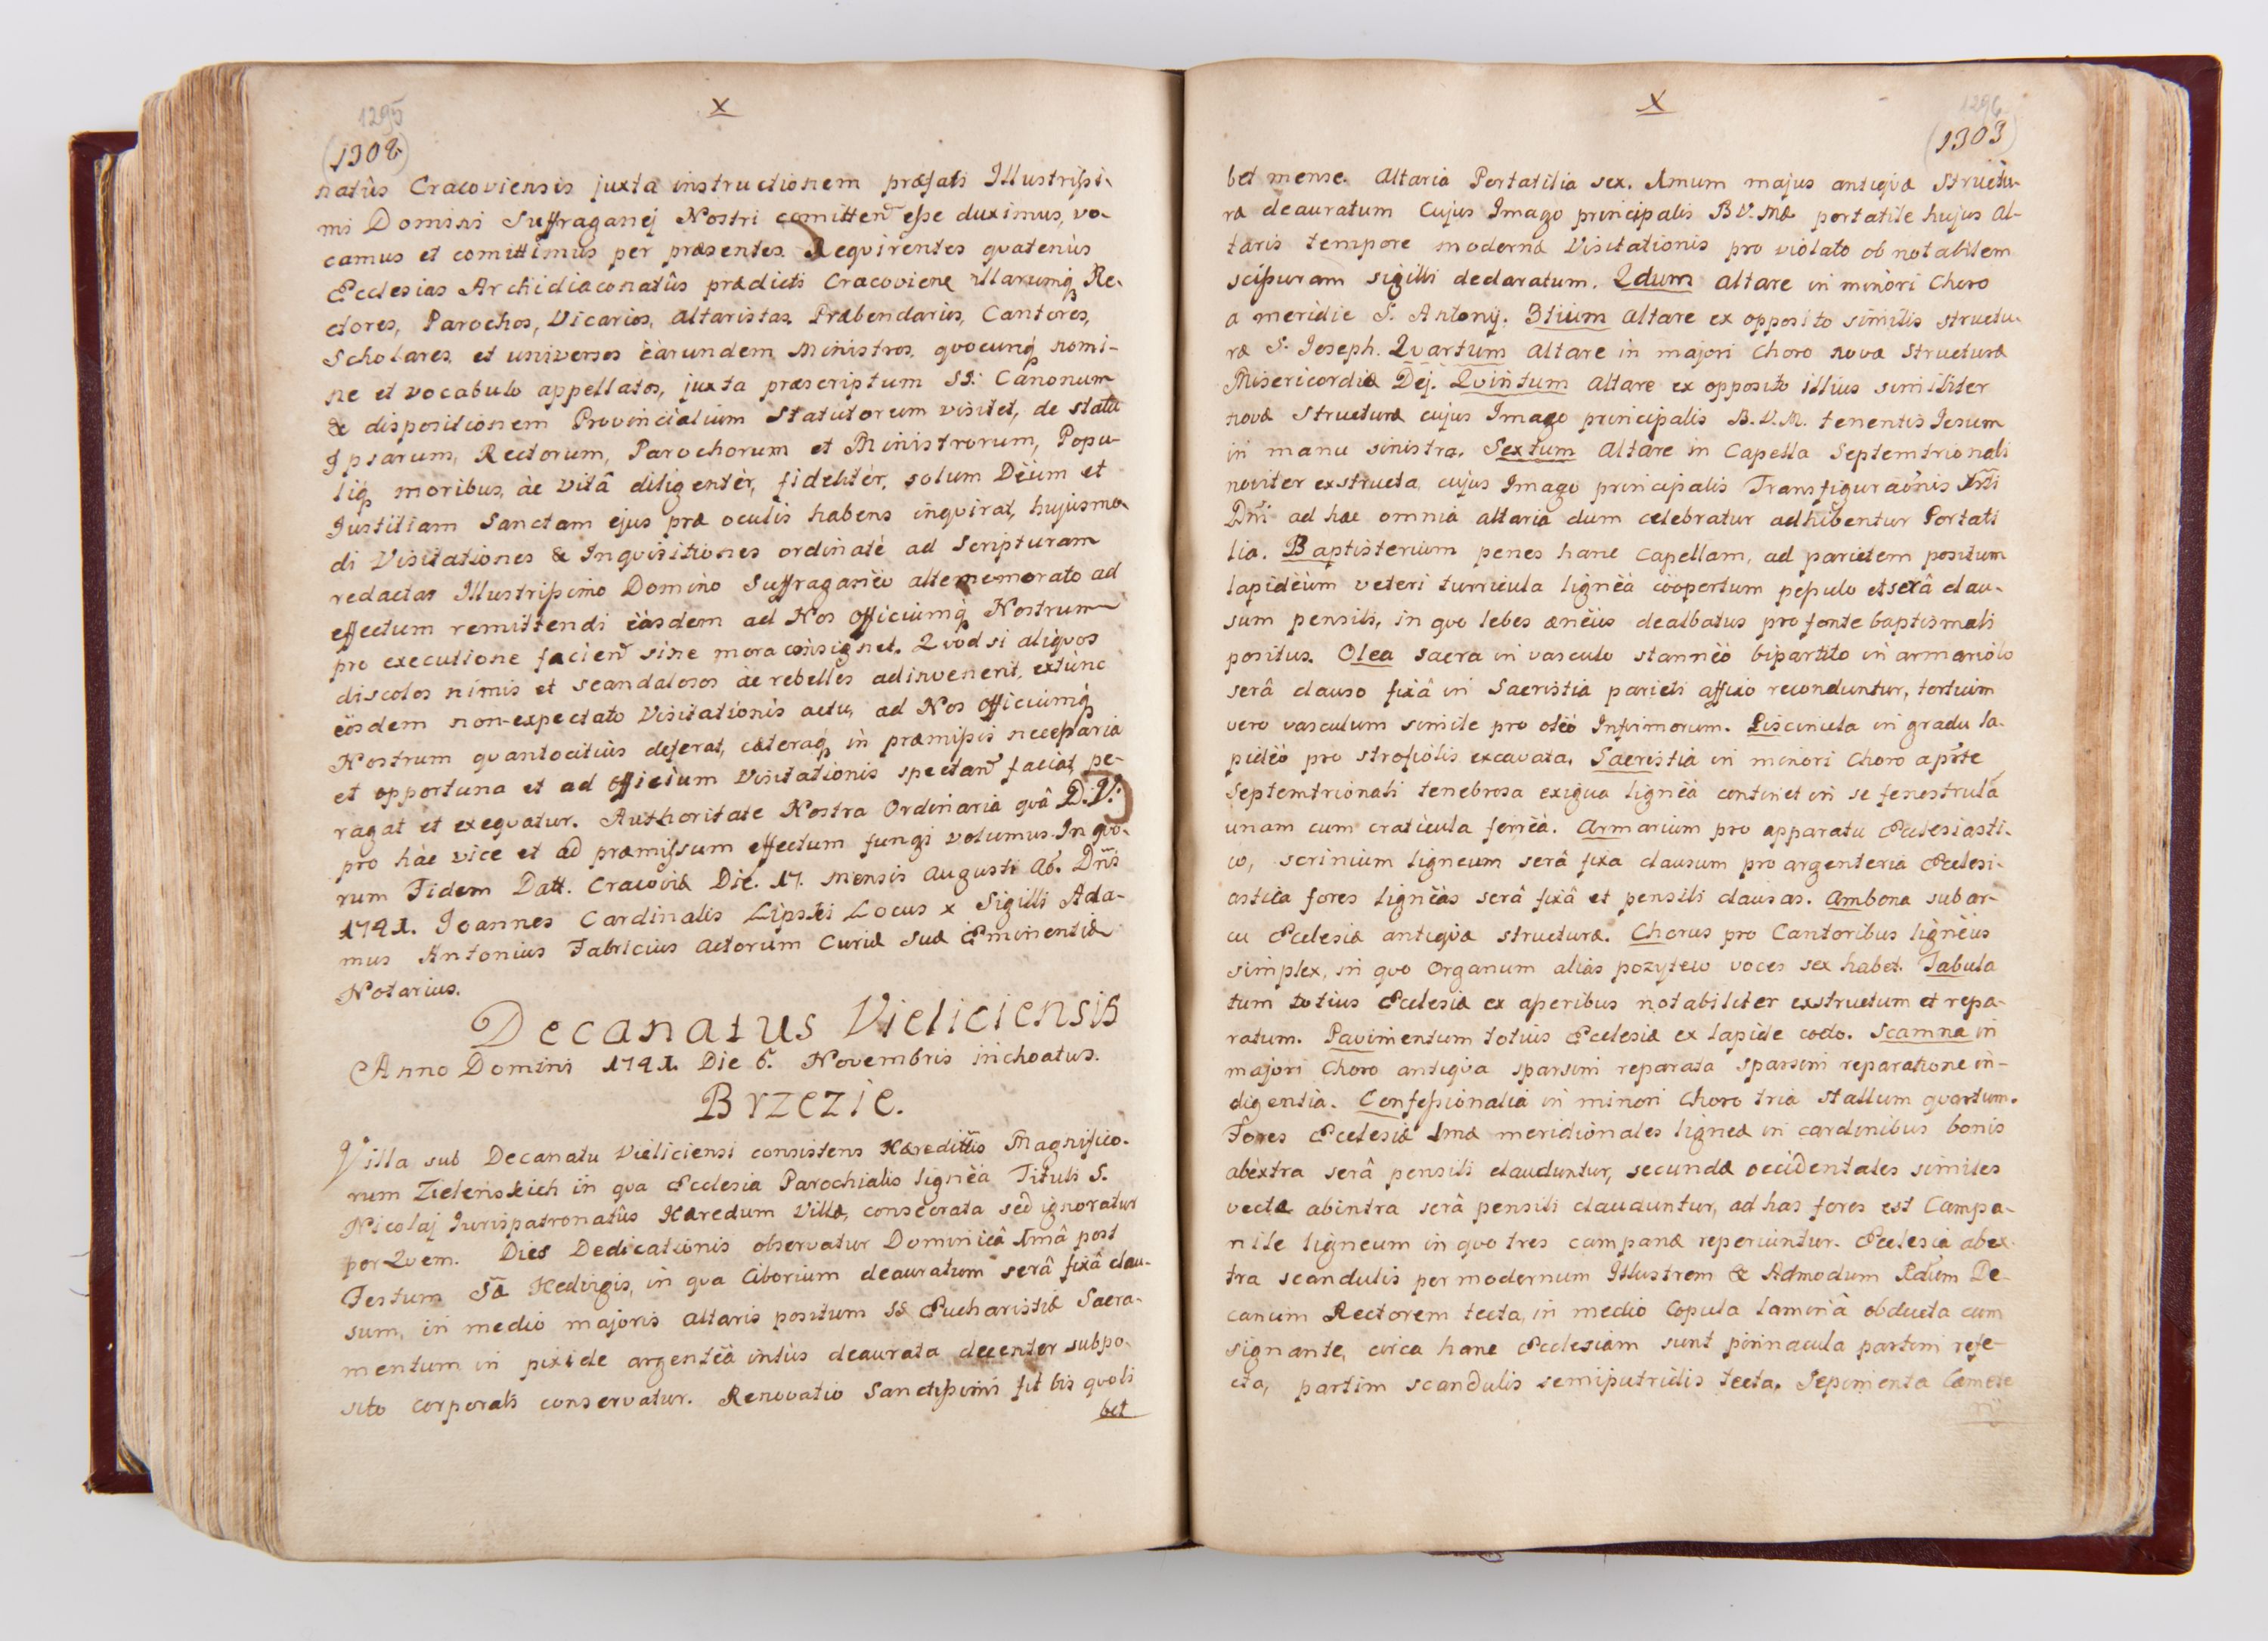 1295
X
(1302)
natûs Cracoviensis juxta instructionem præfati Illustrißi-
mi Domini Suffraganej Nostri comitten̄ eße duximus, vo-
camus et comittimus per præsentes. Reqvirentes qvatenùs
Ecclesias Archidiaconatûs prædicti Cracovien illarumq Re-
ctores, Parochos, Vicarios, Altaristas, Præbendarios, Cantores,
Scholares, et universos eàrundem Ministros, qvocunq nomi-
ne et vocabulo appellatos, juxta præscriptum SS: Canonum
& dispositionem Provincialium Statutorum visitet, de statu
Ipsarum, Rectorum, Parochorum et Ministrorum, Popu-
liq moribus, ac vitâ diligentèr, fidelitèr, solum Deum et
Justitiam Sanctam ejus præ oculis habens inqvirat, hujusmo-
di Visitationes & Inqvisitiones ordinatè ad Scripturam
redactas Illustrißimo Domino Suffraganeo altememorato ad
effectum remittendi eàsdem ad Nos Officiumq Nostrum
pro executione facien̄ sine mora consignet. Qvod si aliqvos
discolos nimis et scandalosos ac rebelles adinvenerit, extunc
eosdem non-expectato Visitationis actu, ad Nos Officiumq
Nostrum qvantocitiùs deferat, cæteraq in præmißis neceßaria
et opportuna et ad officium Visitationis spectan̄ faciat, pe-
ragat et exeqvatur. Authoritate Nostra Ordinaria qvâ D. V.
pro hac vice et ad præmissum effectum fungi volumus. In qvo-
rum Fidem Datt. Cracoviæ Die. 17. mensis Augusti Aō. Dn̄i
1741. Joannes Cardinalis Lipski Locus x Sigilli Ada-
mus Antonius Fabricius Actorum Curiæ Suæ Eminentiæ
Notarius.
Decanatus Vieliciensis
Anno Domini 1741. Die 6. Novembris inchoatus.
Brzezie.
Villa sub Decanatu Vieliciensi consistens Hæredittis Magnifico-
rum Zielenskich in qva Ecclesia Parochialis lignea Tituli S.
Nicolaj Jurispatronatûs Hæredum Villæ, consecrata sed ignoratur
per Qvem. Dies Dedicationis observatur Dominicâ 1mâ post
Festum Sæ Hedvigis, in qva Ciborium deauratum serâ fixâ clau-
sum, in medio majoris altaris positum SS Eucharistiæ Sacra-
mentum in pixide argentea intùs deaurata decenter subpo-
sito corporali conservatur. Renovatio Sanctißimi fit bis qvoli
bet
1296
X
(1303)
bet mense. Altaria Portatilia sex. 1mum majus antiqvæ Structu-
ræ deauratum Cujus Imago principalis B V. Mæ portatile hujus al-
taris tempore modernæ Visitationis pro violato ob notabilem
scißuram sigilli declaratum. 2dum altare in minori Choro
a meridie S. Antonij. 3tium altare ex opposito similis structu-
ræ S. Joseph. Qvartum altare in majori Choro novæ Structuræ
Misericordiæ Dej. Qvintum altare ex opposito illius similiter
novæ Structuræ cujus Imago principalis B. V. M. tenentis Jesum
in manu sinistra. Sextum Altare in Capella Septemtrionali
noviter exstructa cujus Imago principalis Transfigurao̅nis Xti
Dn̄i ad hæc omnia altaria dum celebratur adhibentur Portati
lia. Baptisterium penes hanc Capellam, ad parietem positum
lapideum veteri turricula lignea coopertum peßulo et serâ clau-
sum pensili, in qvo lebes æneus dealbatus pro fonte baptismali
positus. Olea sacra in vasculo stanneo bipartito in armariolo
serâ clauso fixâ in Sacristia parieti affixo reconduntur, tertium
vero vasculum simile pro oleo Infirmorum. Piscinula in gradu la-
pideo pro strofiolis excavata. Sacristia in minori Choro a pr̄te
Septemtrionali tenebrosa exigua lignea continet in se fenestrulā
unam cum craticula ferrea. Armarium pro apparatu Ecclesiasti-
co, scrinium ligneum serâ fixa clausum pro argenteria Ecclesi-
astica fores ligneas serâ fixâ et pensili clausas. Ambona sub ar-
cu Ecclesiæ antiqvæ structuræ. Chorus pro Cantoribus ligneus
simplex, in qvo Organum alias pozytew voces sex habet. Tabula
tum totius Ecclesiæ ex aperibus notabiliter exstructum et repa-
ratum. Pavimentum totius Ecclesiæ ex lapide cocto. Scamna in
majori Choro antiqva sparsim reparata sparsim reparatione in-
digentia. Confeßionalia in minori Choro tria stallum qvartum.
Fores Ecclesiæ 1mæ meridionales ligneæ in cardinibus bonis
abextra serâ pensili clauduntur, secundæ occidentales similes
vectæ abintra serâ pensili clauduntur, ad has fores est Campa-
nile ligneum in qvo tres campanæ reperiuntur. Ecclesia abex-
tra scandulis per modernum Illustrem & Admodum Rdum De-
canum Rectorem tecta, in medio Copula laminâ obducta cum
signante, circa hanc Ecclesiam sunt pinnacula partim refe-
cta, partim scandulis semiputridis tecta. Sepimenta Cæmete
rij